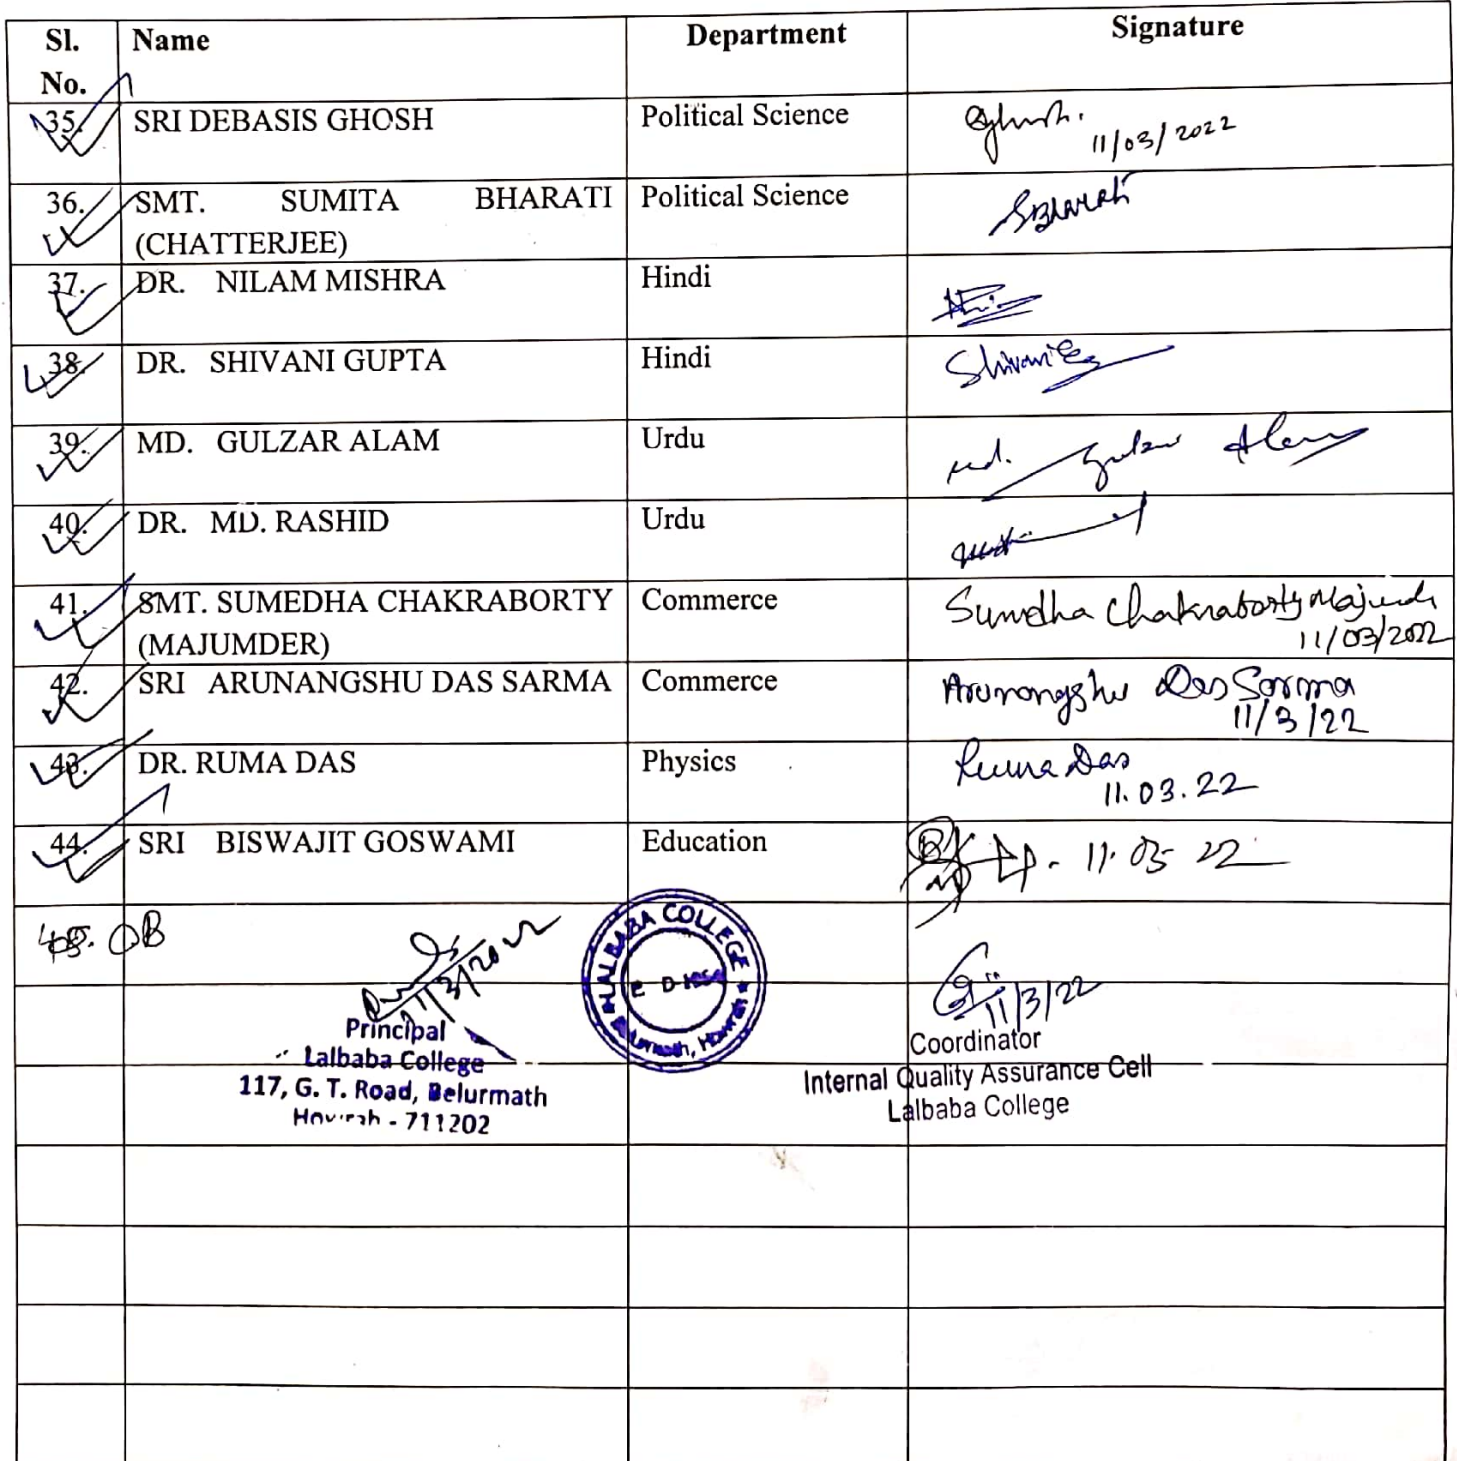 Sl. No. Name Department Signature
35. SRI DEBASIS GHOSH Political Science Ghosh. 11/03/2022
36. SMT. SUMITA BHARATI Political Science SBharati
(CHATTERJEE)
37. DR. NILAM MISHRA Hindi
38. DR. SHIVANI GUPTA Hindi Shivani
39. MD. GULZAR ALAM Urdu Md. Gulzar Alam
40. DR. MD. RASHID Urdu
41. SMT. SUMEDHA CHAKRABORTY Commerce Sumedha Chakraborty Majumder
(MAJUMDER) 11/03/2022
42. SRI ARUNANGSHU DAS SARMA Commerce Arunangshu Das Sarma
11/3/22
43. DR. RUMA DAS Physics Ruma Das
11.03.22
44. SRI BISWAJIT GOSWAMI Education 11.03 22
45.
11/3/2022
Principal
Lalbaba College
117, G. T. Road, Belurmath
Howrah - 711202
LALBABA COLLEGE
Belurmath, Howrah
11/3/22
Coordinator
Internal Quality Assurance Cell
Lalbaba College